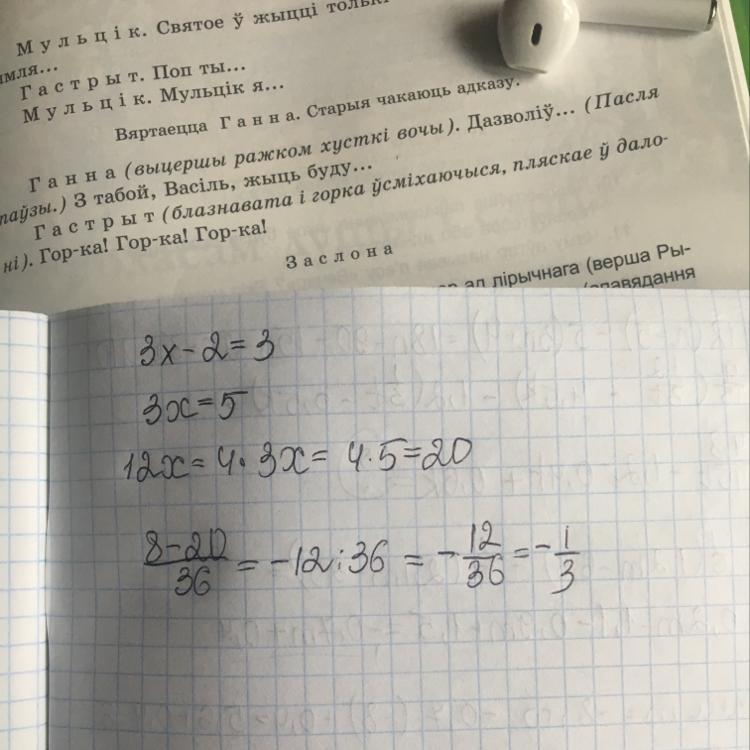 Мульцік. Святое ў жыцці
Гастрыт. Поп ты...
Мульцік. Мульцік я...
Вяртаецца Ганна. Старыя чакаюць адказу.
Ганна (выцершы ражком хусткі вочы). Дазволіў... (Пасля
паўзы.) З табой, Васіль, жыць буду...
Гастрыт (блазнавата і горка ўсміхаючыся, пляскае ў дало-
ні). Гор-ка! Гор-ка! Гор-ка!
Заслона
ад лірычнага (верша Ры-
3x - 2 = 3
3x = 5
12x = 4 · 3x = 4 · 5 = 20
8-20/36 = -12 : 36 = -12/36 = -1/3